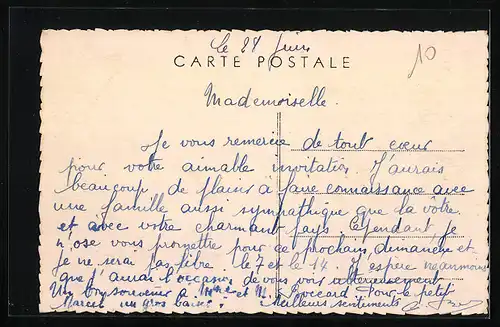 le 28 Juin
10
CARTE POSTALE
Mademoiselle.
Je vous remercie de tout cœur
pour votre aimable invitation. J'aurais
beaucoup de plaisir à faire connaissance avec
une famille aussi sympathique que la vôtre
et avec votre charmant pays. Cependant je
n'ose vous promettre pour ce prochain dimanche et
je ne serai pas libre le 7 et le 14. J'espère néanmoins
que j'aurai l'occasion de vous voir ultérieurement
Un bon souvenir à Mme et M. Boccard. Pour le petit
un gros baiser. Meilleurs sentiments